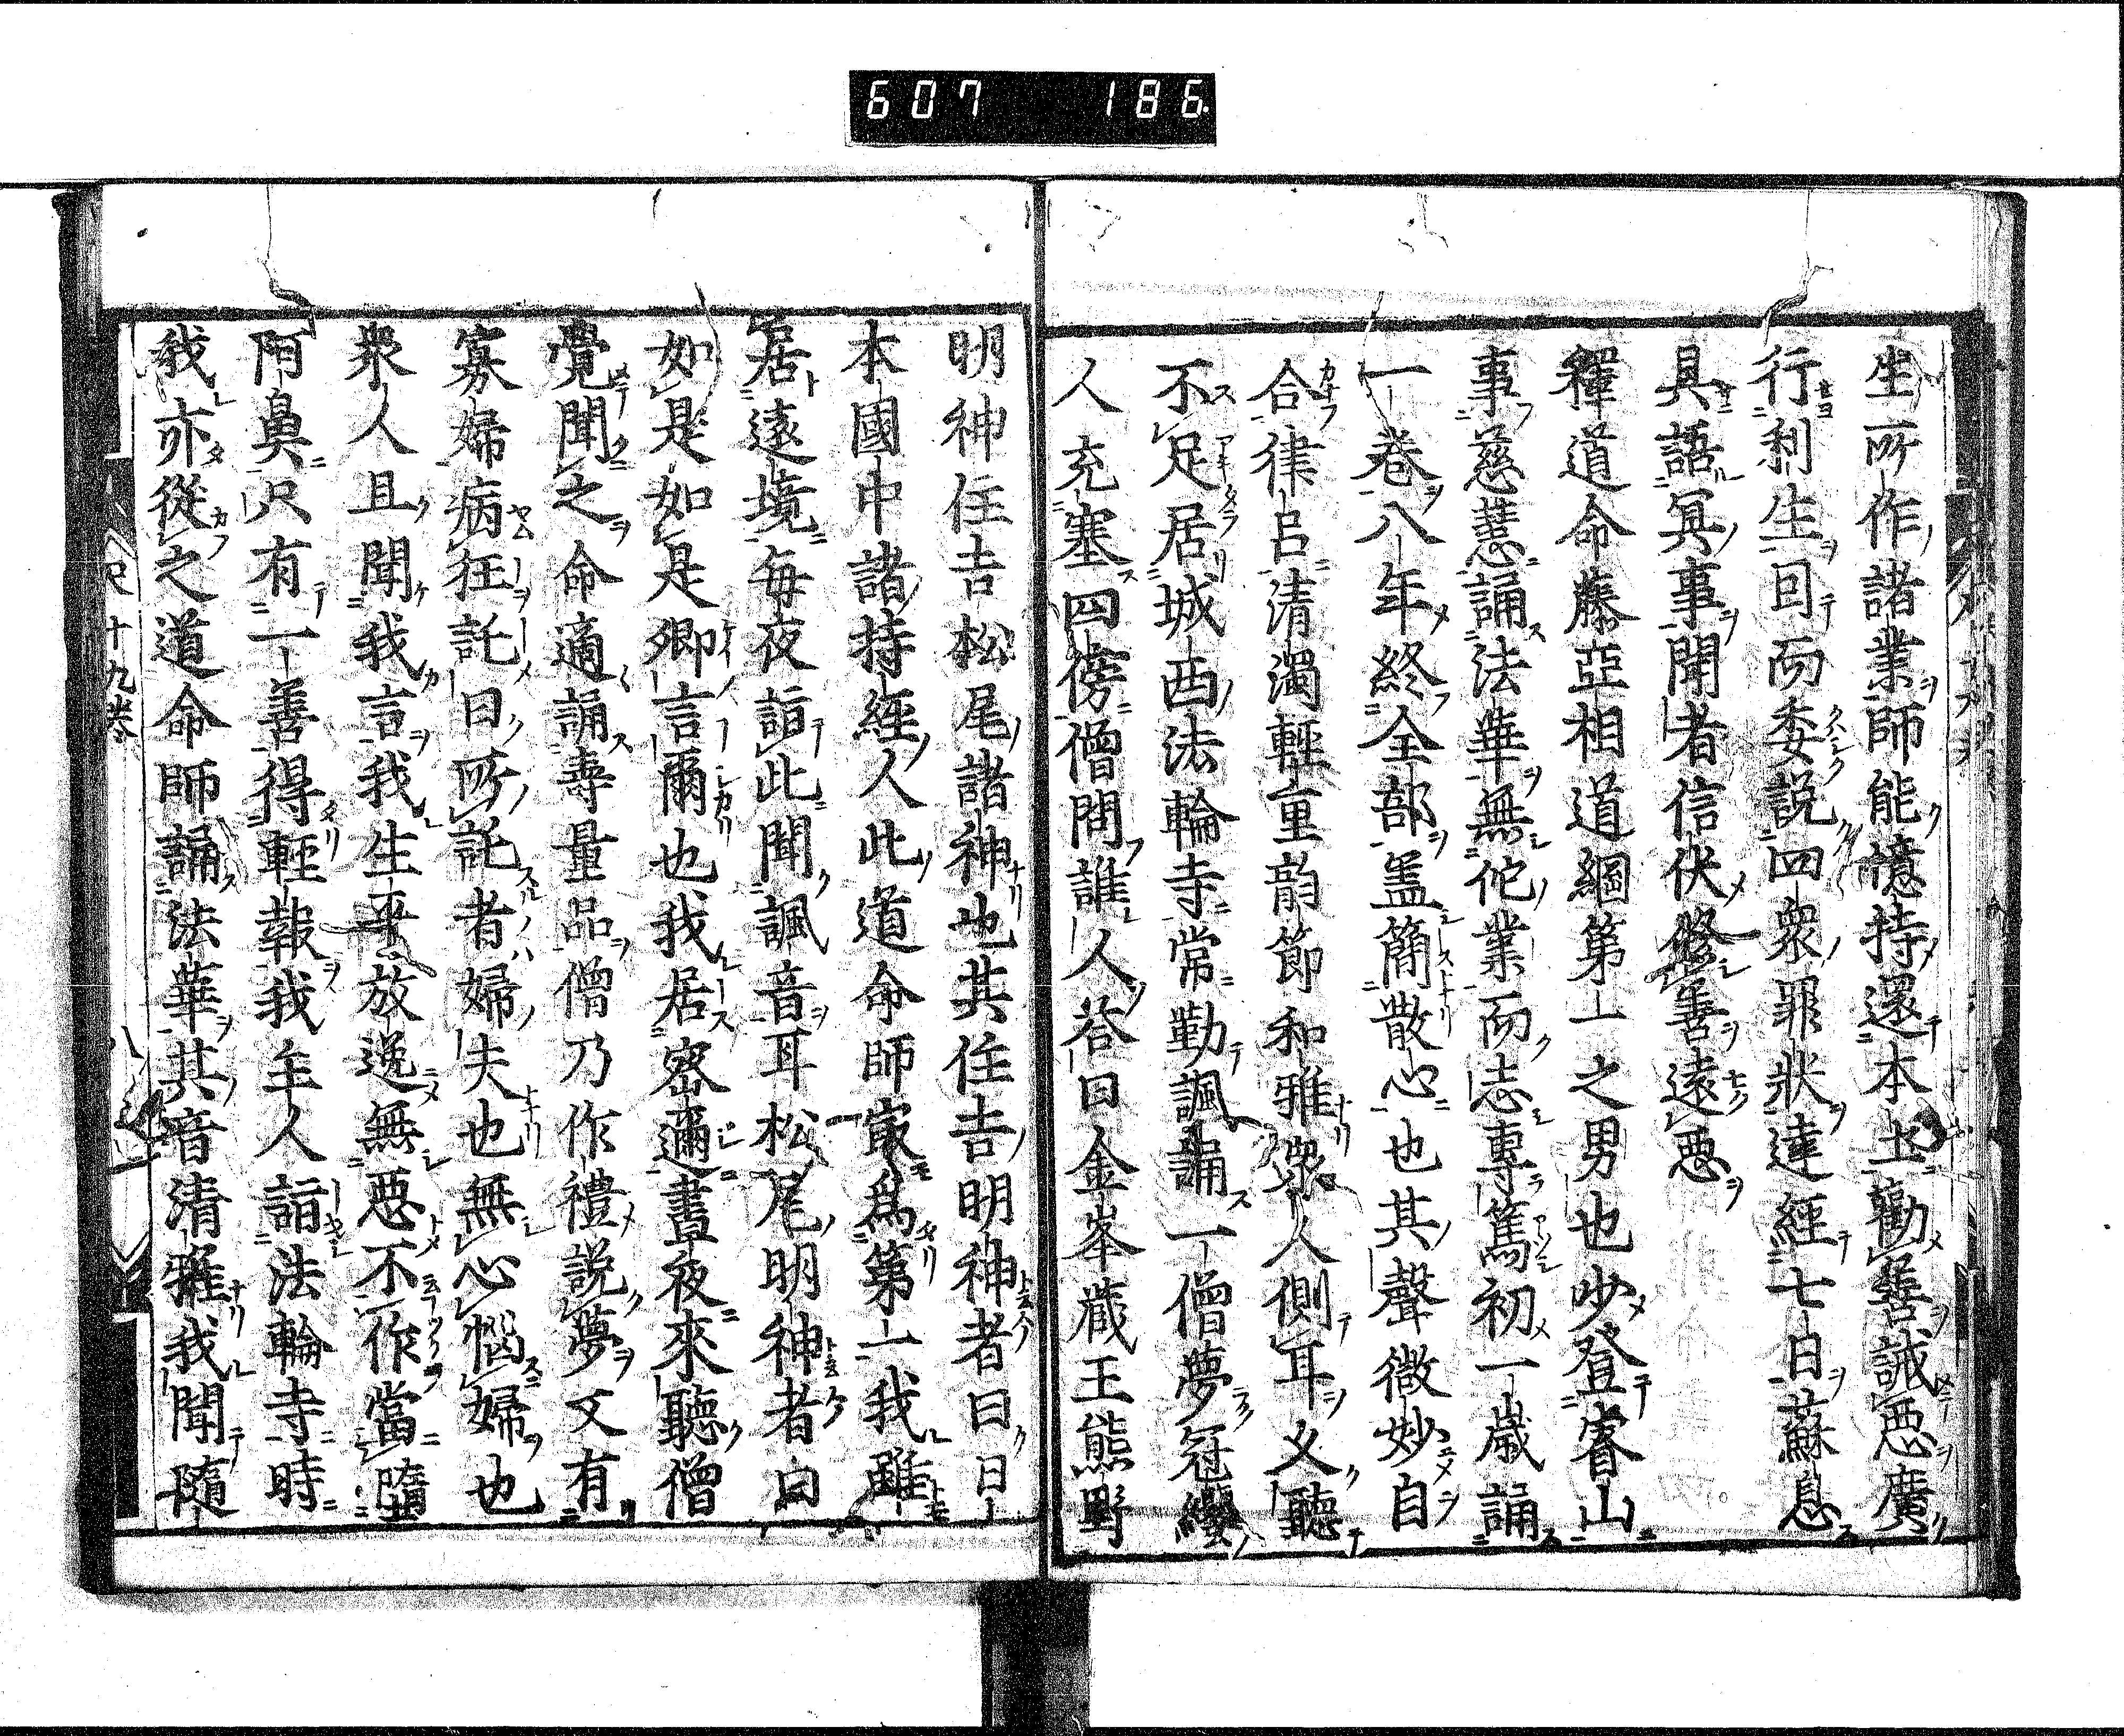 607 186
生所作諸業師能憶持還本土勸善誡惡廣
行利生囙而委說四衆罪狀達經七日蘇息
具語冥事聞者信伏修善遠惡
釋道命藤亞相道綱第一之男也少登睿山
事慈惠誦法華無佗業而志專篤初一歲誦
一卷八年終全部盖簡散心也其聲微妙自
合律呂清濁輕重韵節和雅衆人側耳又聽
不足居城西法輪寺常勤諷誦一僧夢冠纓
人充塞四傍僧問誰人荅曰金峯藏王熊野
明神住吉松尾諸神也其住吉明神者曰日
本國中諸持經人此道命師最爲第一我雖
居遠境每夜詣此聞諷音耳松尾明神者曰
如是如是卿言爾也我居密邇晝夜來聽僧
覺聞之命適誦壽量品僧乃作禮說夢又有
寡婦病狂託曰所託者婦夫也無心惱婦也
衆人且聞我言我生平放逸無惡不作當墮
阿鼻只有一善得輕報我年人詣法輪寺時
我亦從之道命師誦法華其音清雅我聞隨
十九卷
八